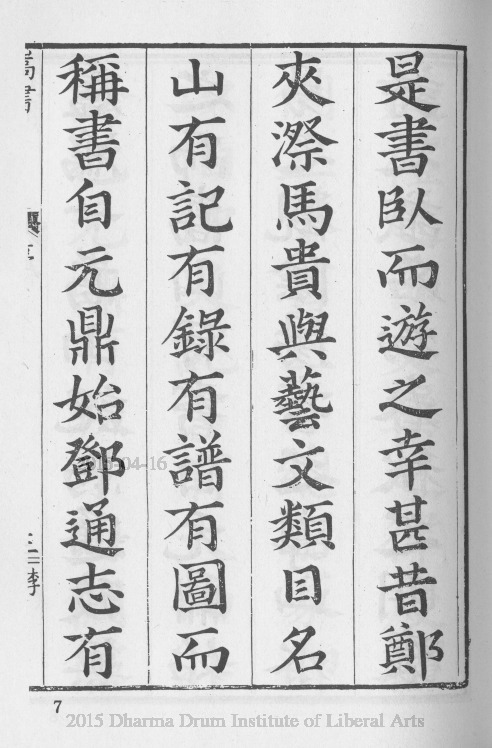 是書臥而遊之幸甚昔鄭
夾漈馬貴與藝文類目名
山有記有錄有譜有圖而
稱書自元鼎始鄧通志有
嵩書
序
三
李
7
2015-04-16
2015 Dharma Drum Institute of Liberal Arts